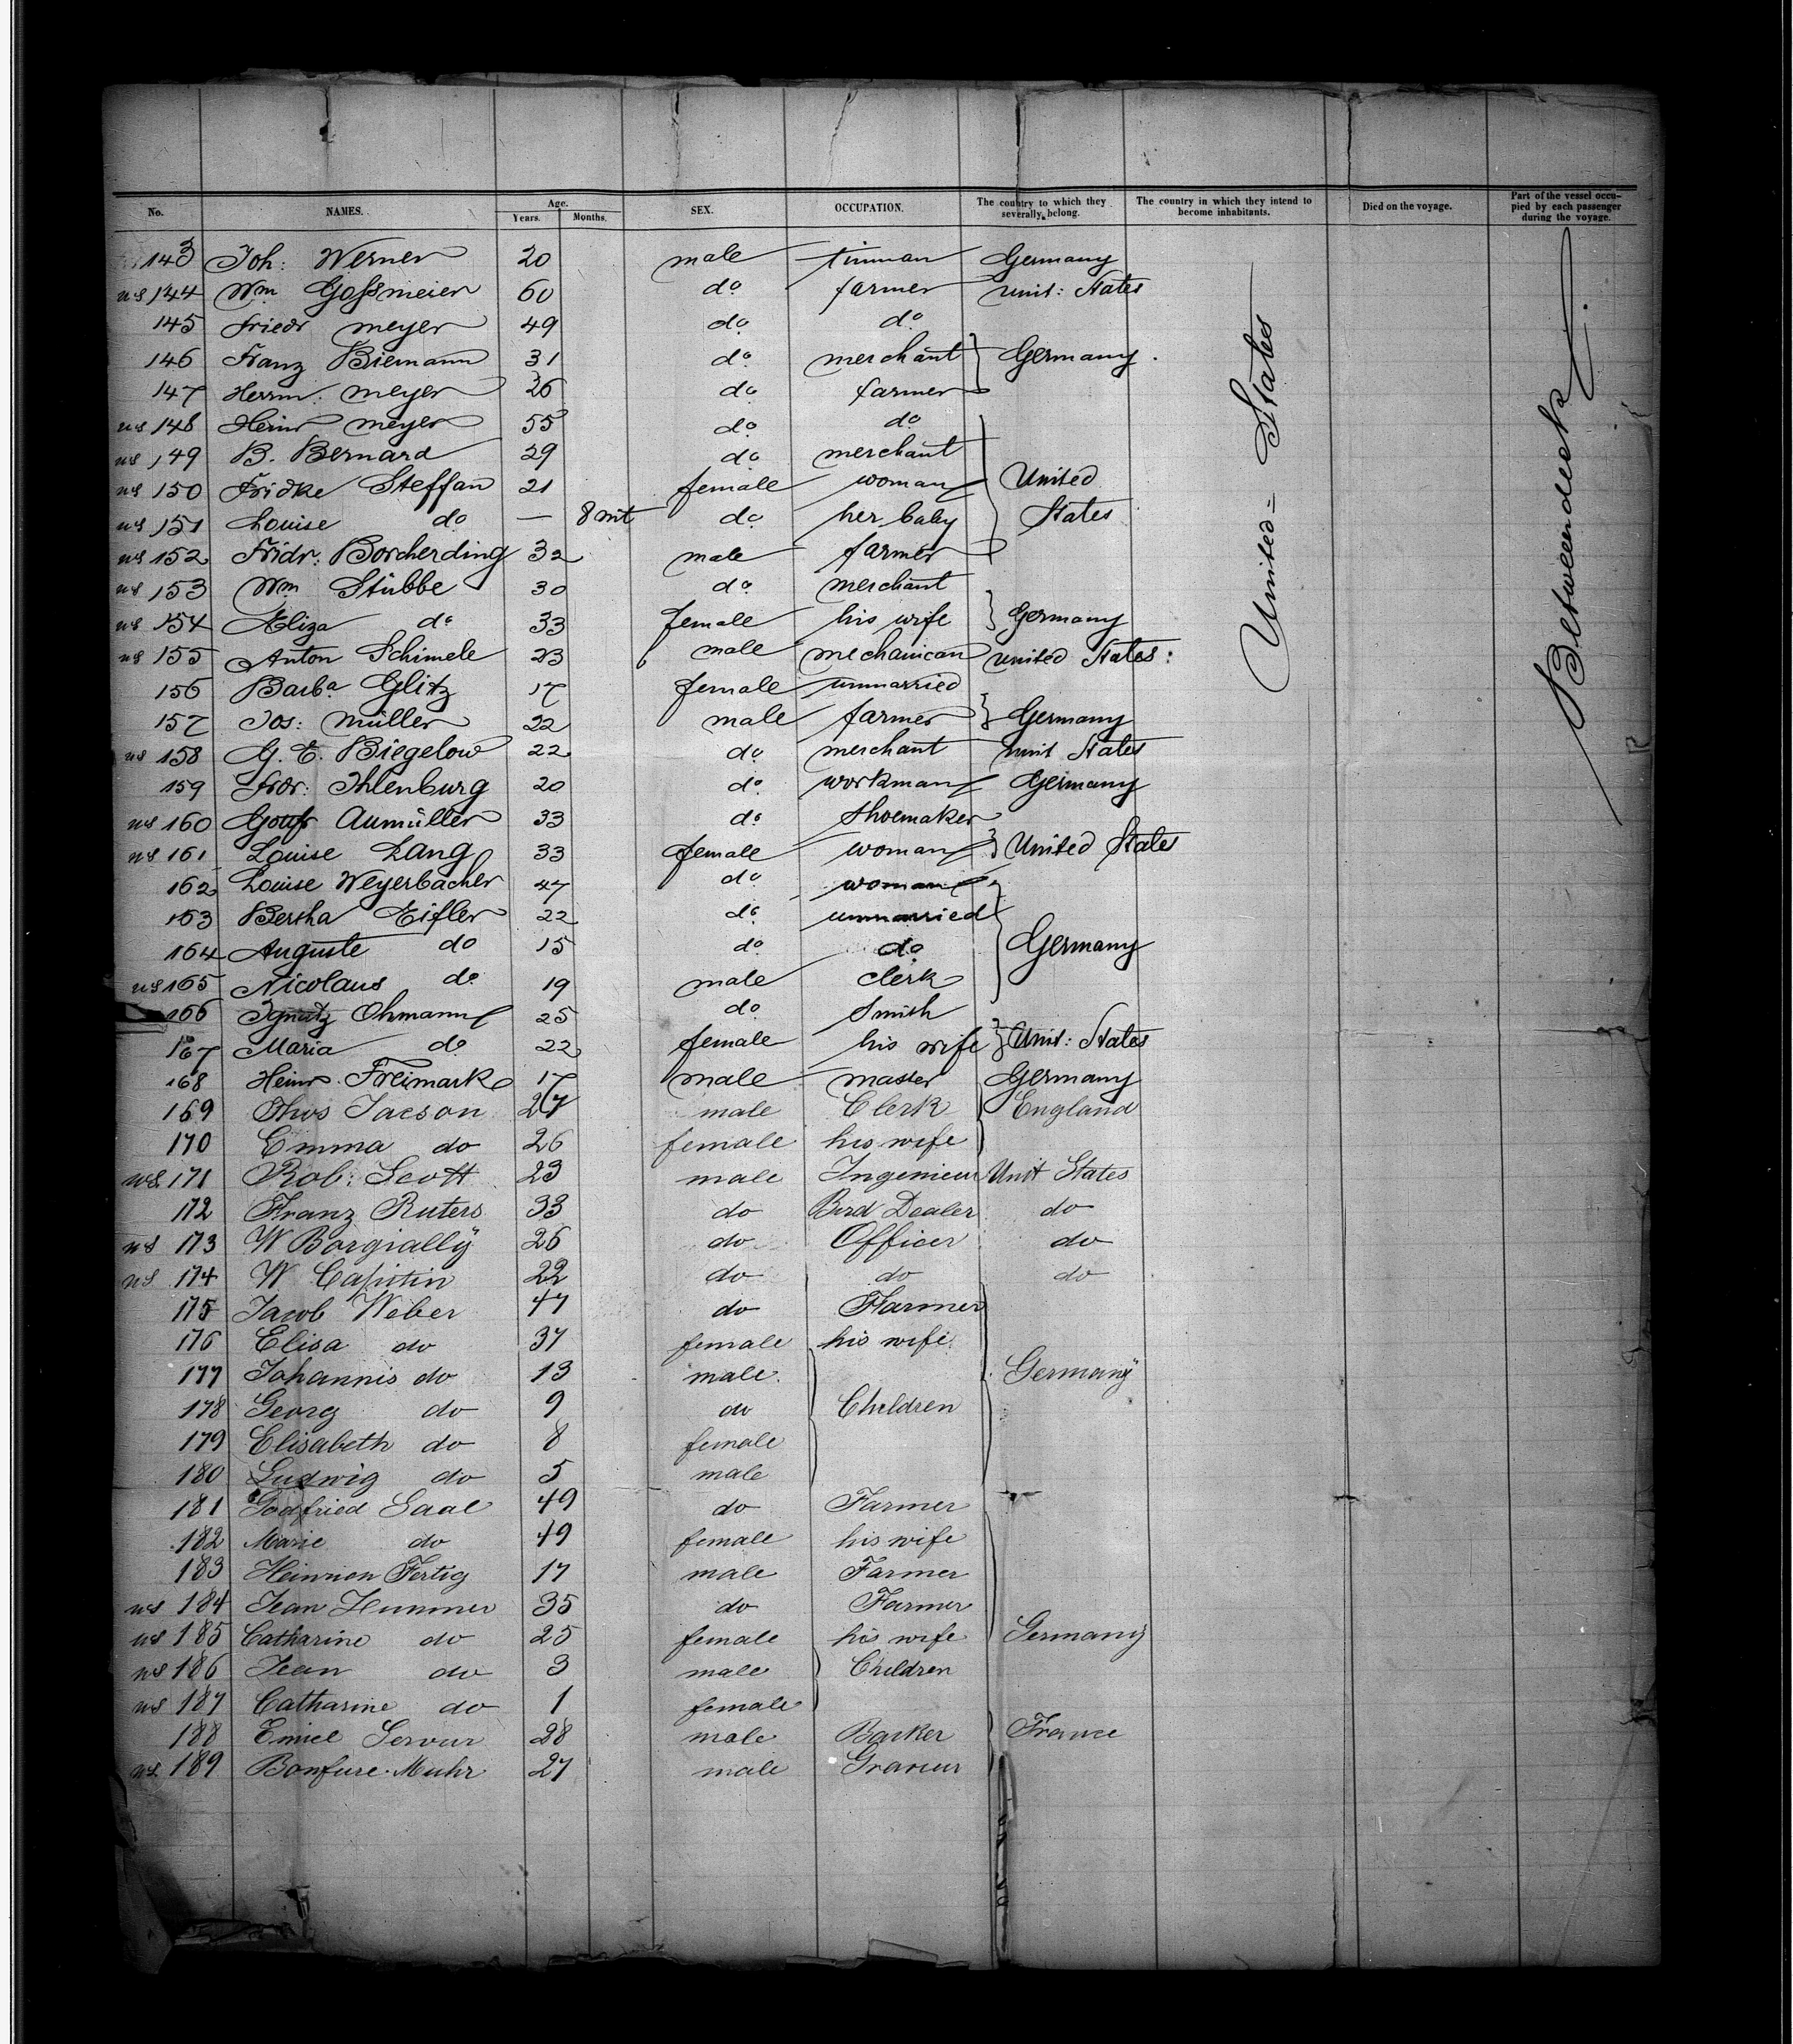 No. NAMES. Age. Years. Months. SEX. OCCUPATION. The country to which they severally belong. The country in which they intend to become inhabitants. Died on the voyage. Part of the vessel occupied by each passenger during the voyage.
143 Joh: Werner 20 male tinman Germany
us 144 Wm Goßmeier 60 do farmer unit: States
145 Friedr meyer 49 do do
146 Franz Biemann 31 do merchant Germany.
147 Herrm. meyer 26 do farmer
us 148 Heinr meyer 55 do do
us 149 B. Bernard 29 do merchant
us 150 Fridke Steffan 21 female woman United
us 151 Louise do — 8 mt do her baby States
us 152 Fridr: Borcherding 32 male farmer
us 153 Wm Stübbe 30 do merchant
us 154 Eliza do 33 female his wife Germany
us 155 Anton Schimele 23 male mechanican united States:
156 Barba Glitz 17 female unmarried
157 Jos: müller 22 male farmer Germany
us 158 G. E. Biegelow 22 do merchant unit States
159 Frdr: Ihlenburg 20 do workman Germany
us 160 Aumüller 33 do Shoemaker
us 161 Louise Lang 33 female woman United States
162 Louise Weyerbacher 47 do woman
163 Bertha Eifler 22 do unmarried
164 Auguste do 15 do do Germany
us 165 Nicolaus do 19 male clerk
166 Ignatz Ohmann 25 do Smith
167 Maria do 22 female his wife Unit: States
168 Heinr. Freimark 17 male master Germany
169 Thos Jacson 27 male Clerk England
170 Emma do 26 female his wife
us 171 Rob: Scott 23 male Ingenieur Unit States
172 Franz Ruters 33 do Bird Dealer do
us 173 W Borgially 26 do Officer do
us 174 W Capistin 22 do do do
175 Jacob Weber 47 do Farmer
176 Elisa do 37 female his wife
177 Johannis do 13 male Germany
178 Georg do 9 do Children
179 Elisabeth do 8 female
180 Ludwig do 5 male
181 Godfried Saal 49 do Farmer
182 Marie do 49 female his wife
183 Heinrich Fertig 17 male Farmer
us 184 Jean Hummer 35 do Farmer
us 185 Catharine do 25 female his wife Germany
us 186 Jean do 3 male Children
us 187 Catharine do 1 female
188 Emiel Servur 28 male Barker France
us 189 Bonfure Muhr 27 male Graveur
United States
Betweendeck